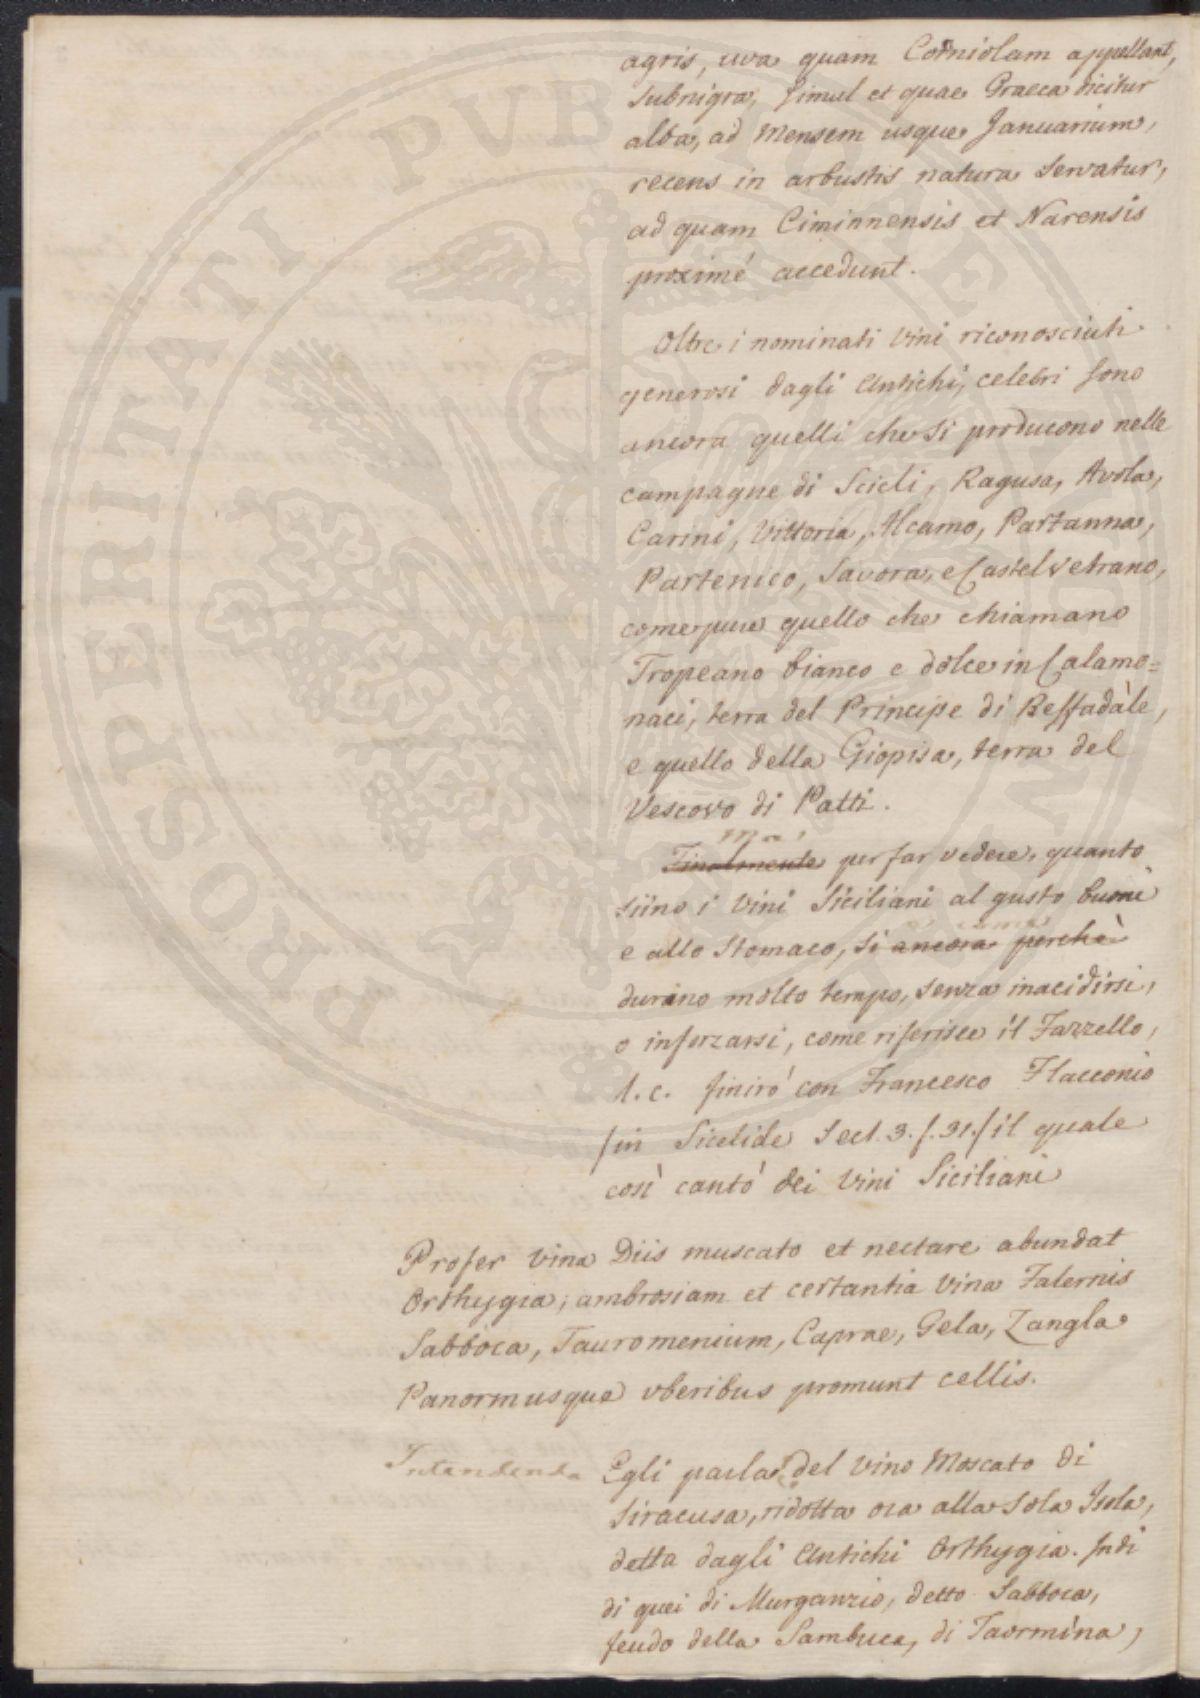 agris, uva quam Corniolam appellant,
subnigra, simul et quae Graeca dicitur
alba, ad Mensem usque Januarium,
recens in arbustis natura servatur,
ad quam Ciminnensis et Narensis
proximé accedunt.
Oltre i nominati Vini riconosciuti
generosi dagli Antichi, celebri sono
ancora quelli che si producono nelle
campagne di Scicli, Ragusa, Avola,
Carini, Vittoria, Alcamo, Partanna,
Partenico, Savora, e Castelvetrano,
come pure quello che chiamano
Tropeano bianco e dolce in Calamo=
naci, terra del Principe di Reffadàle,
e quello della Giopisa, terra del
Vescovo di Patti.
Ma
Finalmente per far vedere, quanto
siino i Vini Siciliani al gusto buoni
e allo Stomaco, si ancora perchè
durino molto tempo, senza inacidirsi,
o inforzarsi, come riferisce il Fazzello,
l.c. finirò con Francesco Flacconio
/in Sicelide Sect. 3. f. 31./ il quale
così cantò dei Vini Siciliani
Profer vina Diis muscato et nectare abundat
Orthygia; ambrosiam et certantia Vina Falernis
Sabboca, Tauromenium, Caprae, Gela, Zangla
Panormusque vberibus promunt cellis.
Intendenda
Egli parla del Vino Moscato di
Siracusa, ridotta ora alla sola Isola,
detta dagli Antichi Orthygia. Indi
di quei di Murganzio, detto Sabboca,
feudo della Sambuca, di Taormina,
PROSPERITATI PVB